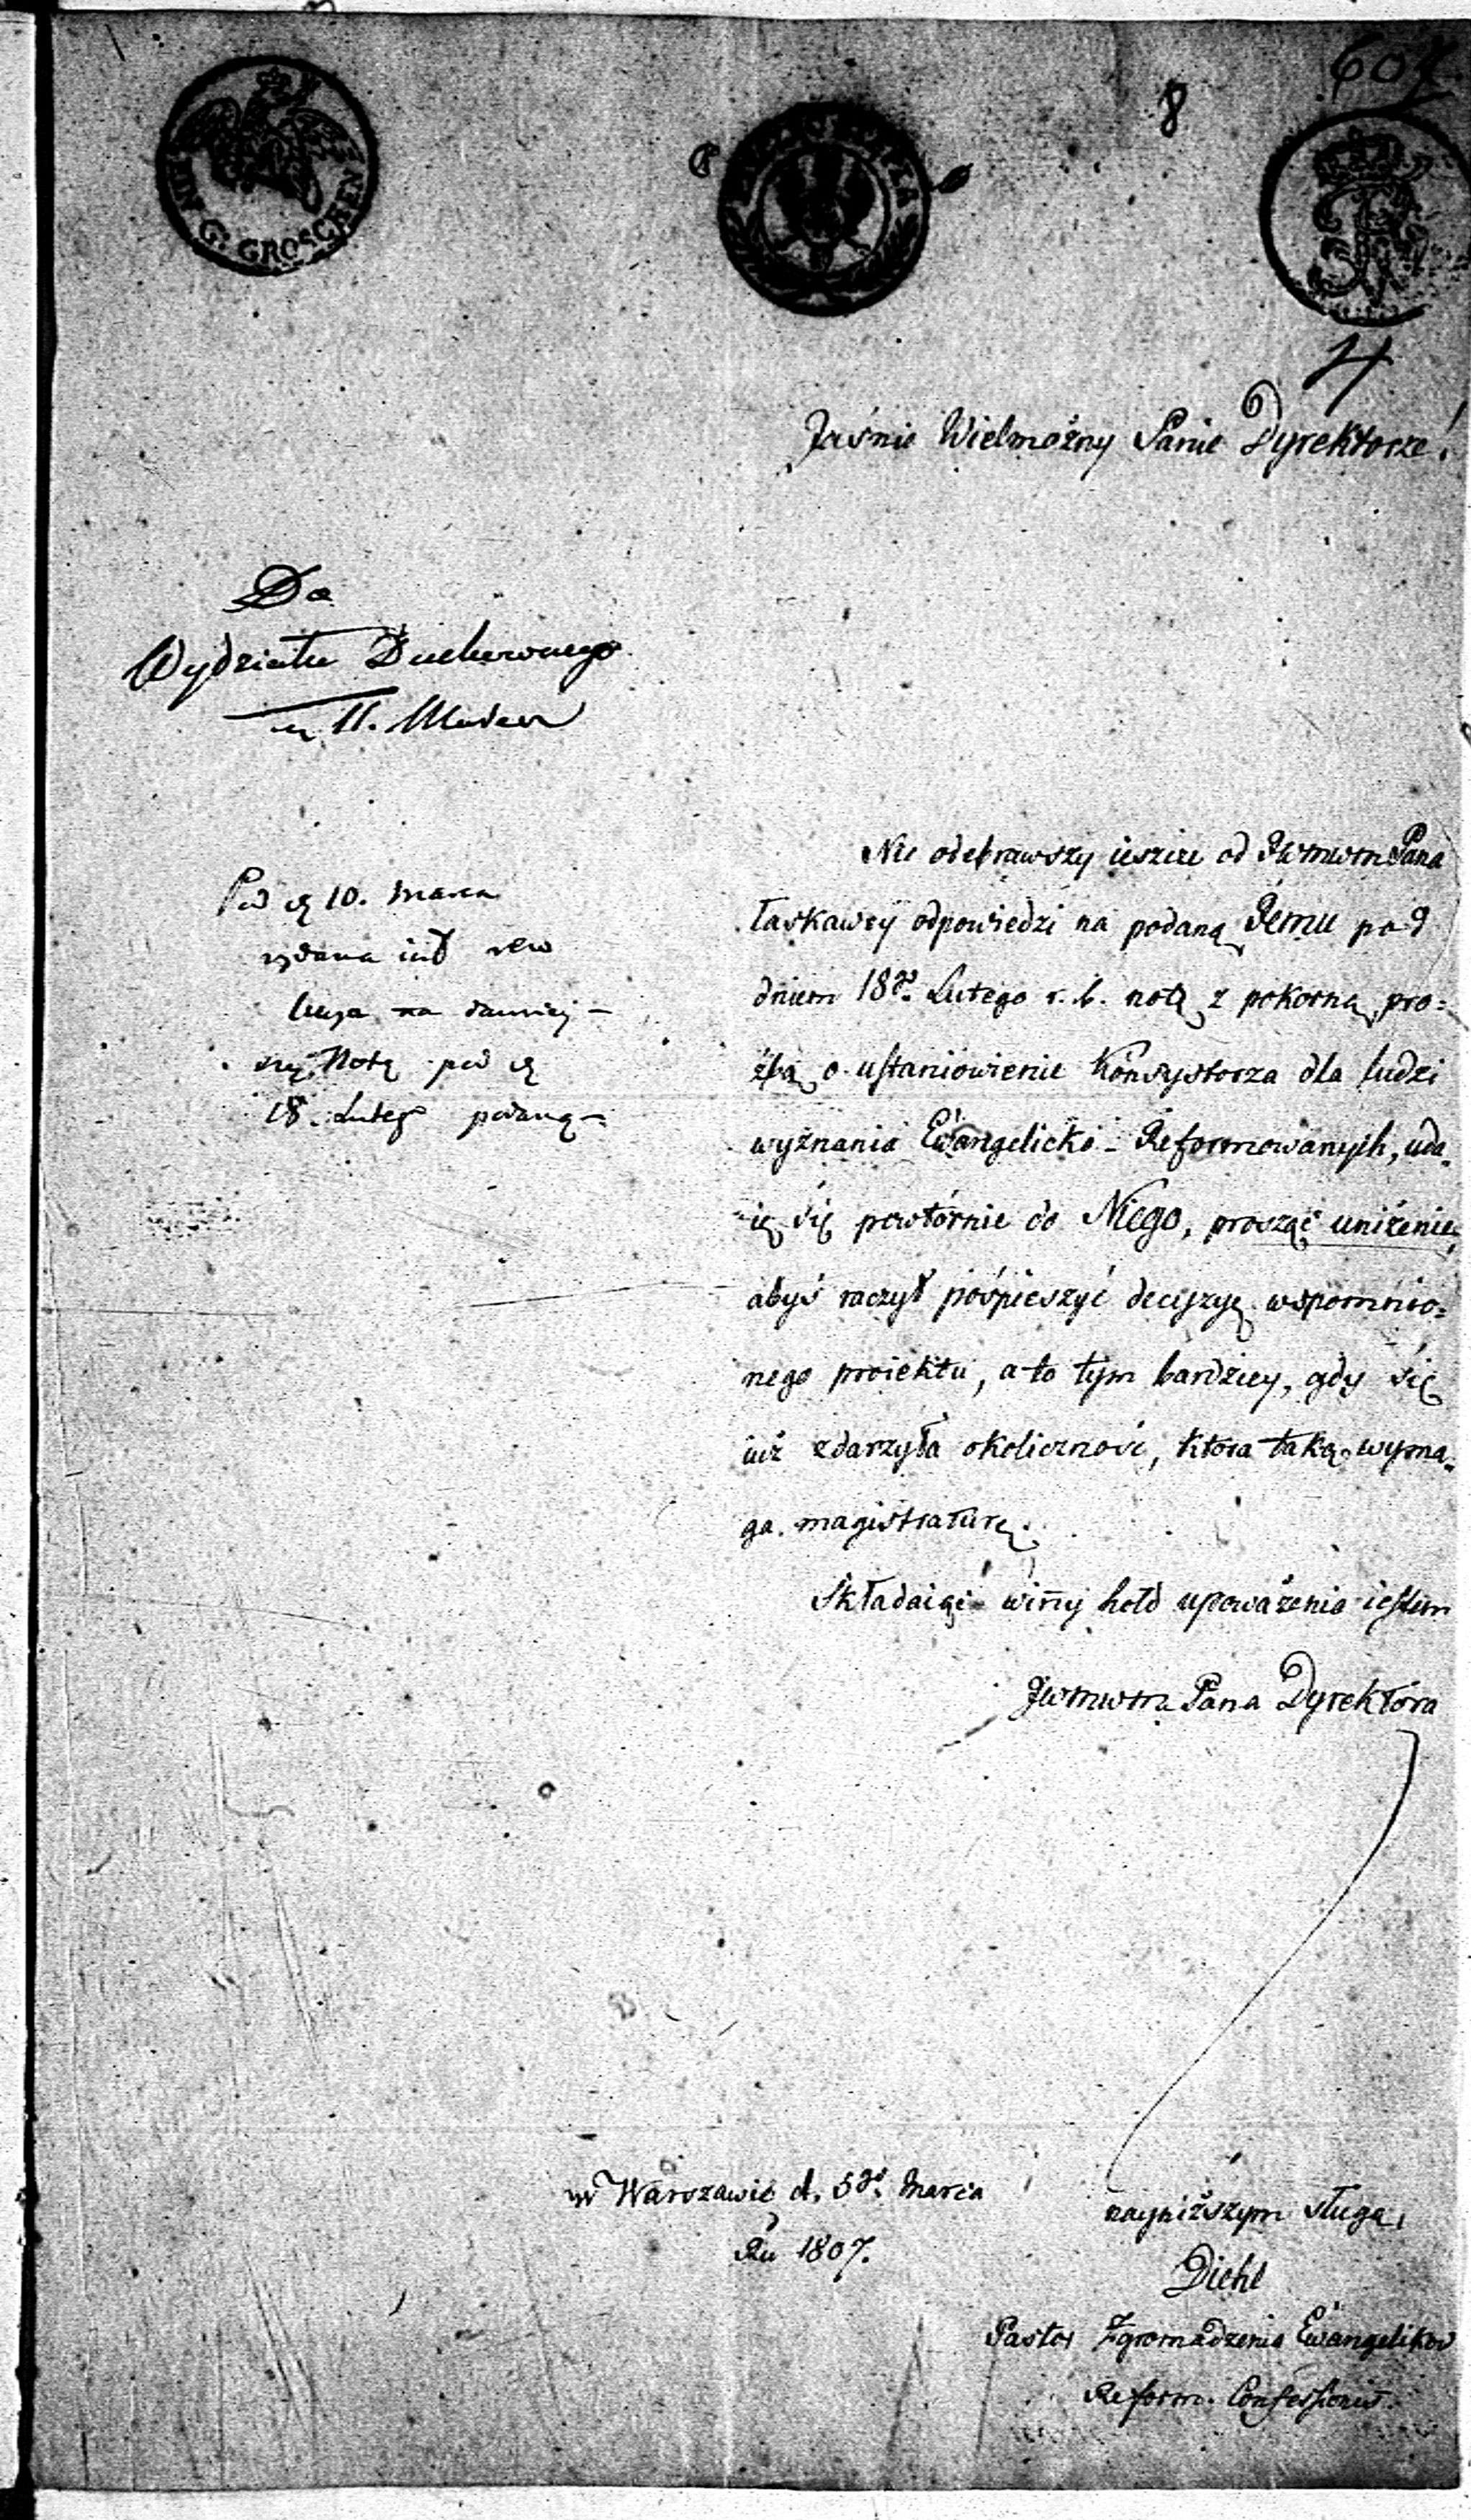 604
8
VIII G. GROSCHEN
4
Jaśnie Wielmożny Panie Dyrektorze!
Do
Wydziału Duchownego
11. Marca
Nie odebrawszy ieszcze od JWmwm Pana
łaskawey odpowiedzi na podaną Jemu pod
dniem 18go. Lutego r. b. notę z pokorną pro=
źbą o ustanowienie Konsystorza dla ludzi
wyznania Ewangelicko-Reformowanych, uda=
ię się powtórnie do Niego, prosząc uniżenie,
abyś raczył pośpieszyć decyzyę wspomnio=
nego proiektu, a to tym bardziey, gdy się
iuż zdarzyła okoliczność, która taką wyma=
ga magistraturę.
Składaiąc winny hołd upoważenia iestem
JWmwm Pana Dyrektora
Pod dn 10. Marca
wydana iuż rezo
lucya na dawniej-
szą Notę pod dn
18. Lutego podaną-
w Warszawie d. 5go. Marca
Ru 1807.
nayniższym sługą,
Diehl
Pastor Zgromadzenia Ewangelików
Reform. Confessionis.